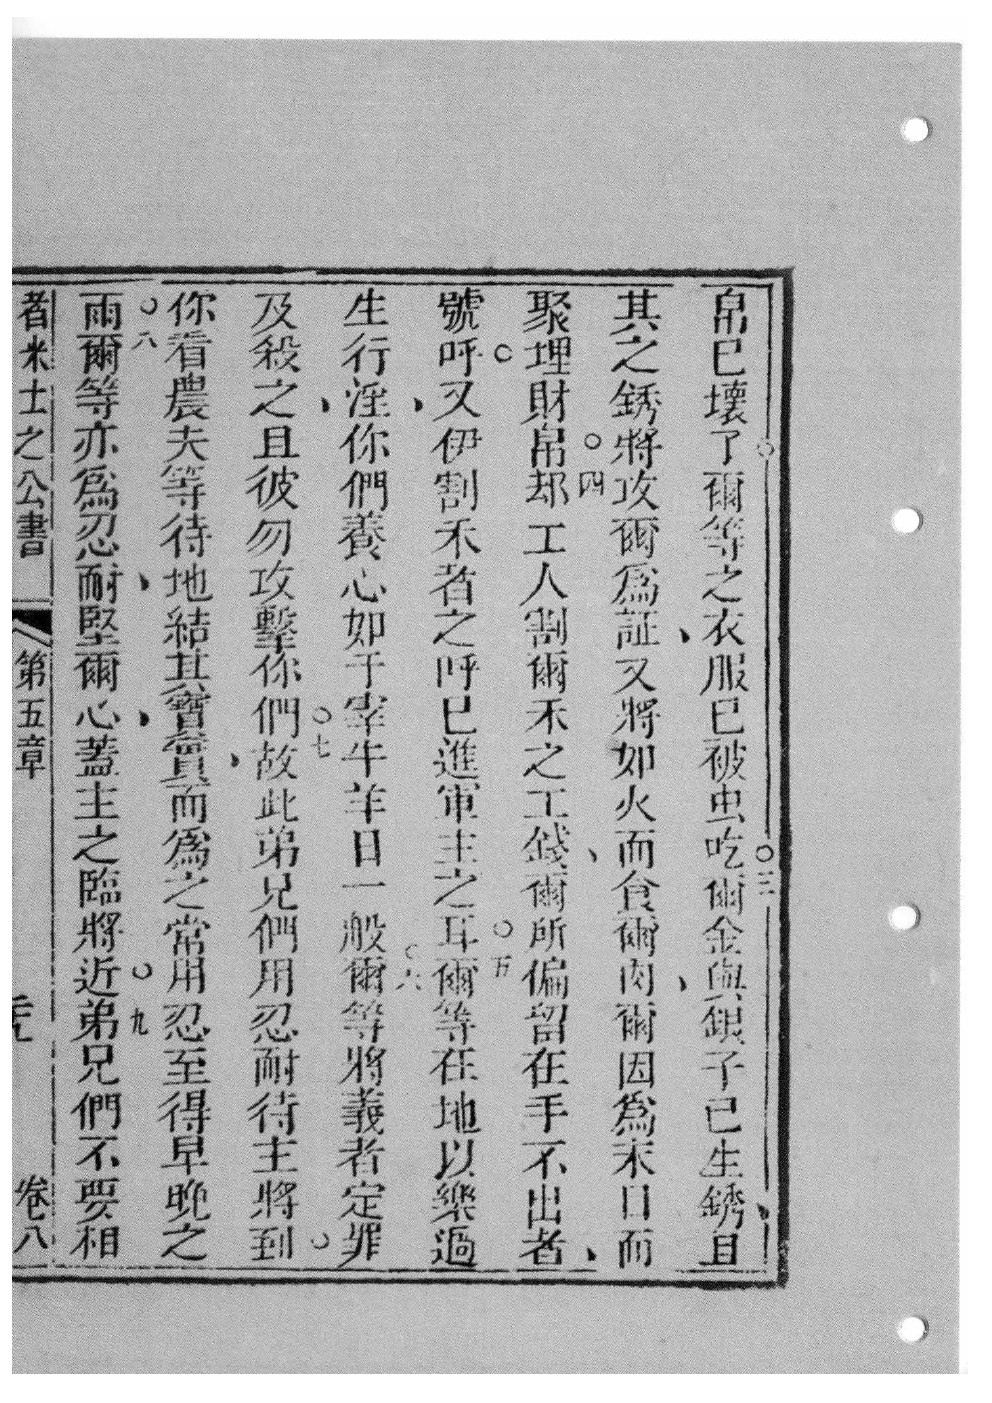 帛已壞了爾等之衣服已被虫吃○三爾金與銀子已生銹且
其之銹將攻爾為証又將如火而食爾肉爾因為末日而
聚埋財帛○四却工人割爾禾之工錢爾所偏留在手不出者
號呼又伊割禾者之呼已進軍主之耳○五爾等在地以樂過
生行淫你們養心如于宰牛羊日一般○六爾等將義者定罪
及殺之且彼勿攻擊你們○七故此弟兄們用忍耐待主將到
你看農夫等待地結其寶貴而為之常用忍至得早晚之
雨○八爾等亦為忍耐堅爾心蓋主之臨將近○九弟兄們不要相
者米士之公書 第五章 卷八